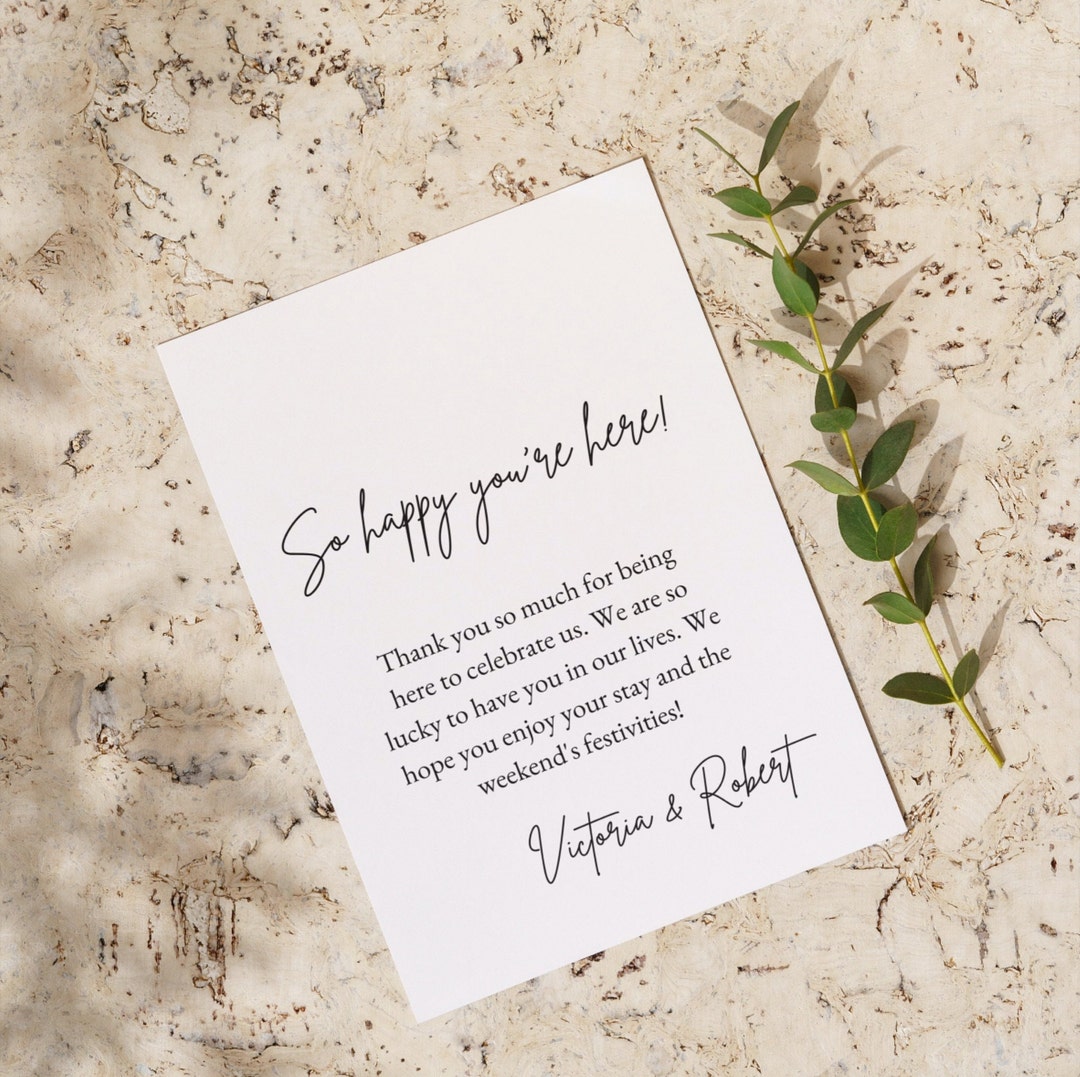 So happy you're here!
Thank you so much for being
here to celebrate us. We are so
lucky to have you in our lives. We
hope you enjoy your stay and the
weekend's festivities!
Victoria & Robert